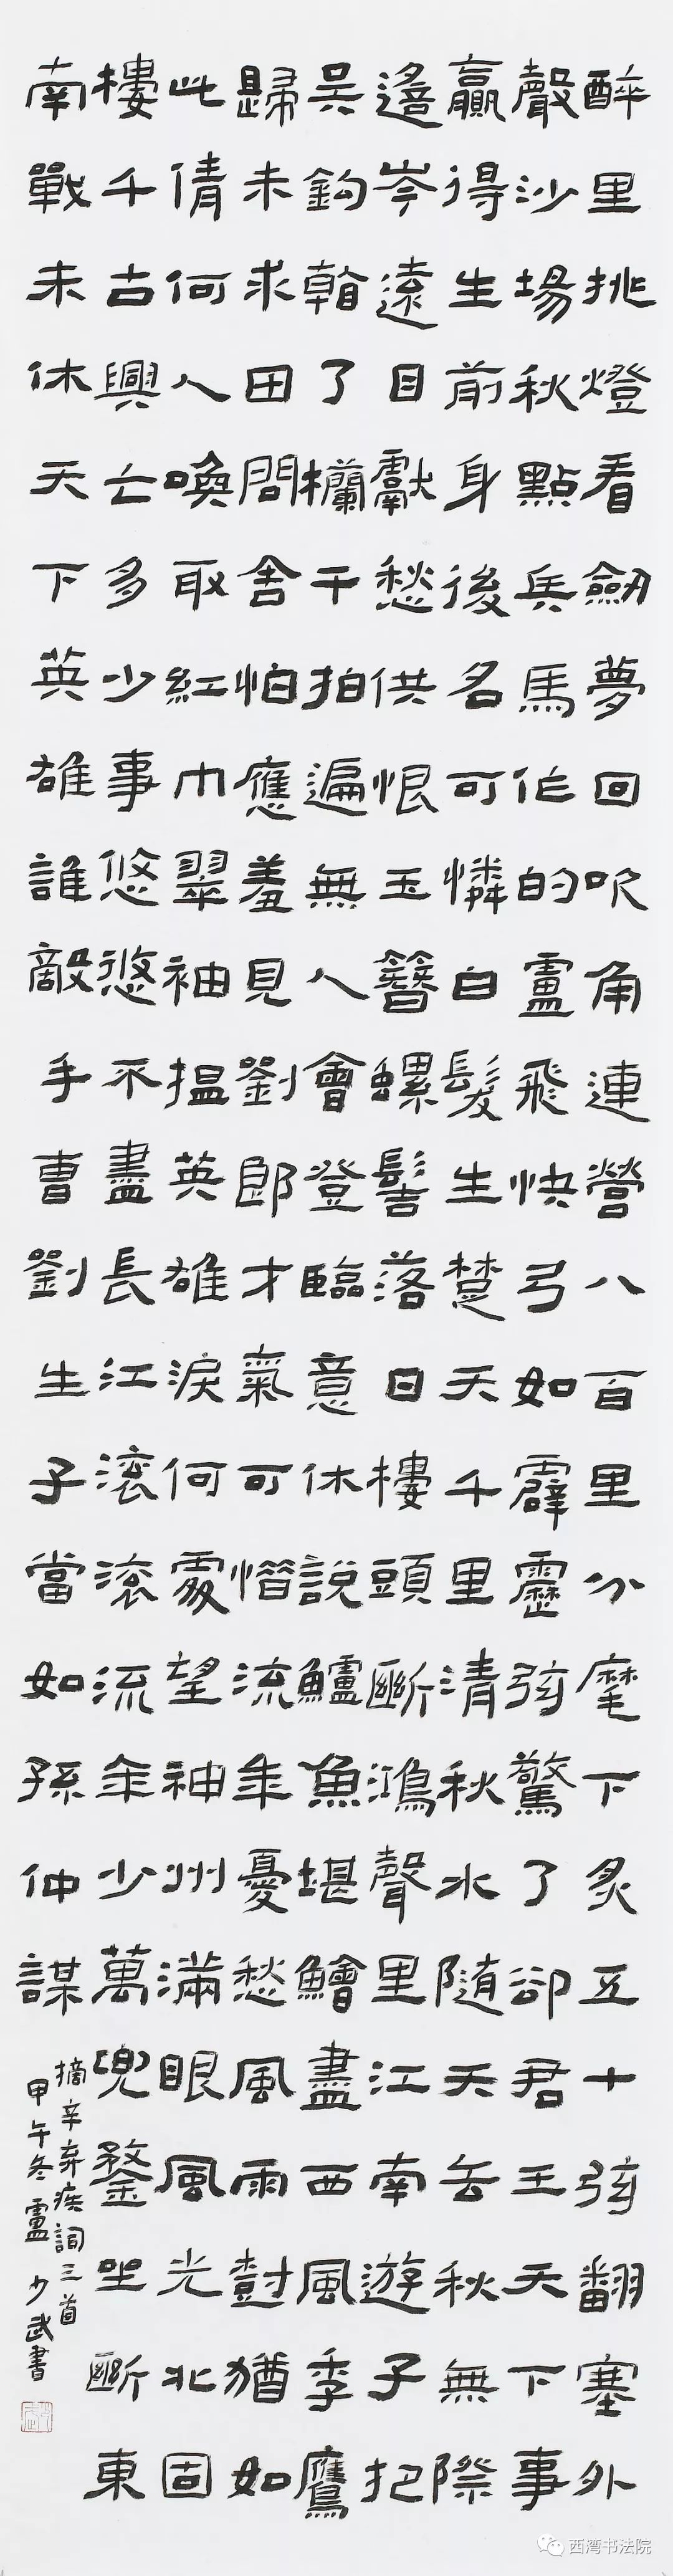 醉里挑燈看劒夢回吹角連營八百里分麾下炙五十弦翻塞外
聲沙場秋點兵馬作的盧飛快弓如霹靂弦驚了卻君王天下事
贏得生前身後名可憐白髮生楚天千里清秋水隨天去秋無際
遙岑遠目獻愁供恨玉簪螺髻落日樓頭斷鴻聲里江南遊子把
吴鉤看了欄干拍遍無人會登臨意休說鱸魚堪鱠盡西風季鷹
歸未求田問舍怕應羞見劉郎才氣可惜流年憂愁風雨樹猶如
此倩何人喚取紅巾翠袖揾英雄淚何處望神州滿眼風光北固
樓千古興亡多少事悠悠不盡長江滾滾流年少萬兜鍪坐斷東
南戰未休天下英雄誰敵手曹劉生子當如孫仲謀
摘辛弃疾詞三首
甲午冬盧少武書
西湾书法院